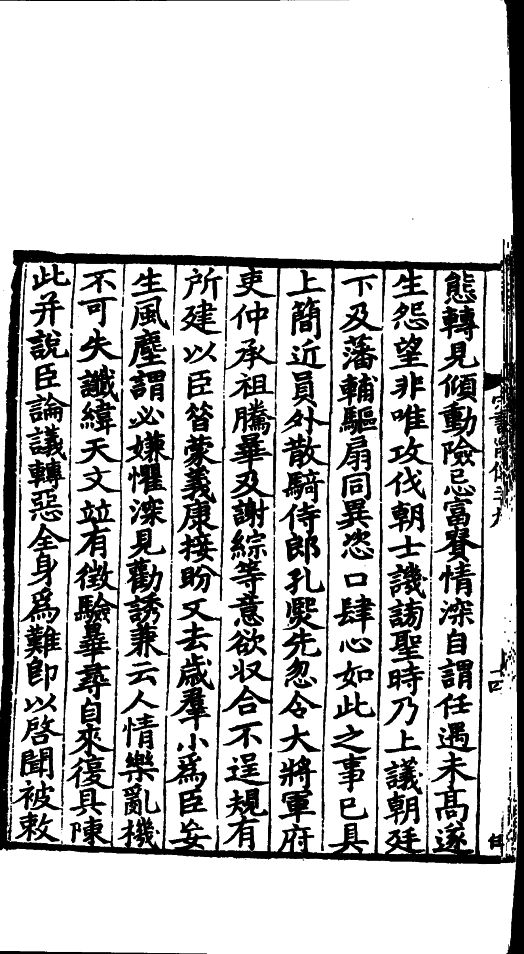 態轉見傾動險忌富賢情深自謂任遇未髙遂
生怨望非唯攻伐朝士譏謗聖時乃上議朝廷
下及藩輔驅扇同異恣口肆心如此之事已具
上簡近員外散騎侍郎孔熈先忽令大將軍府
吏仲承祖騰曅及謝綜等意欲収合不逞規有
所建以臣昝蒙義康接盼又去歳羣小爲臣妄
生風塵謂必嫌懼深見勸誘兼云人情樂亂機
不可失讖緯天文竝有徴驗曅尋自來復具陳
此并說臣論議轉惡全身爲難卽以啓聞被敕